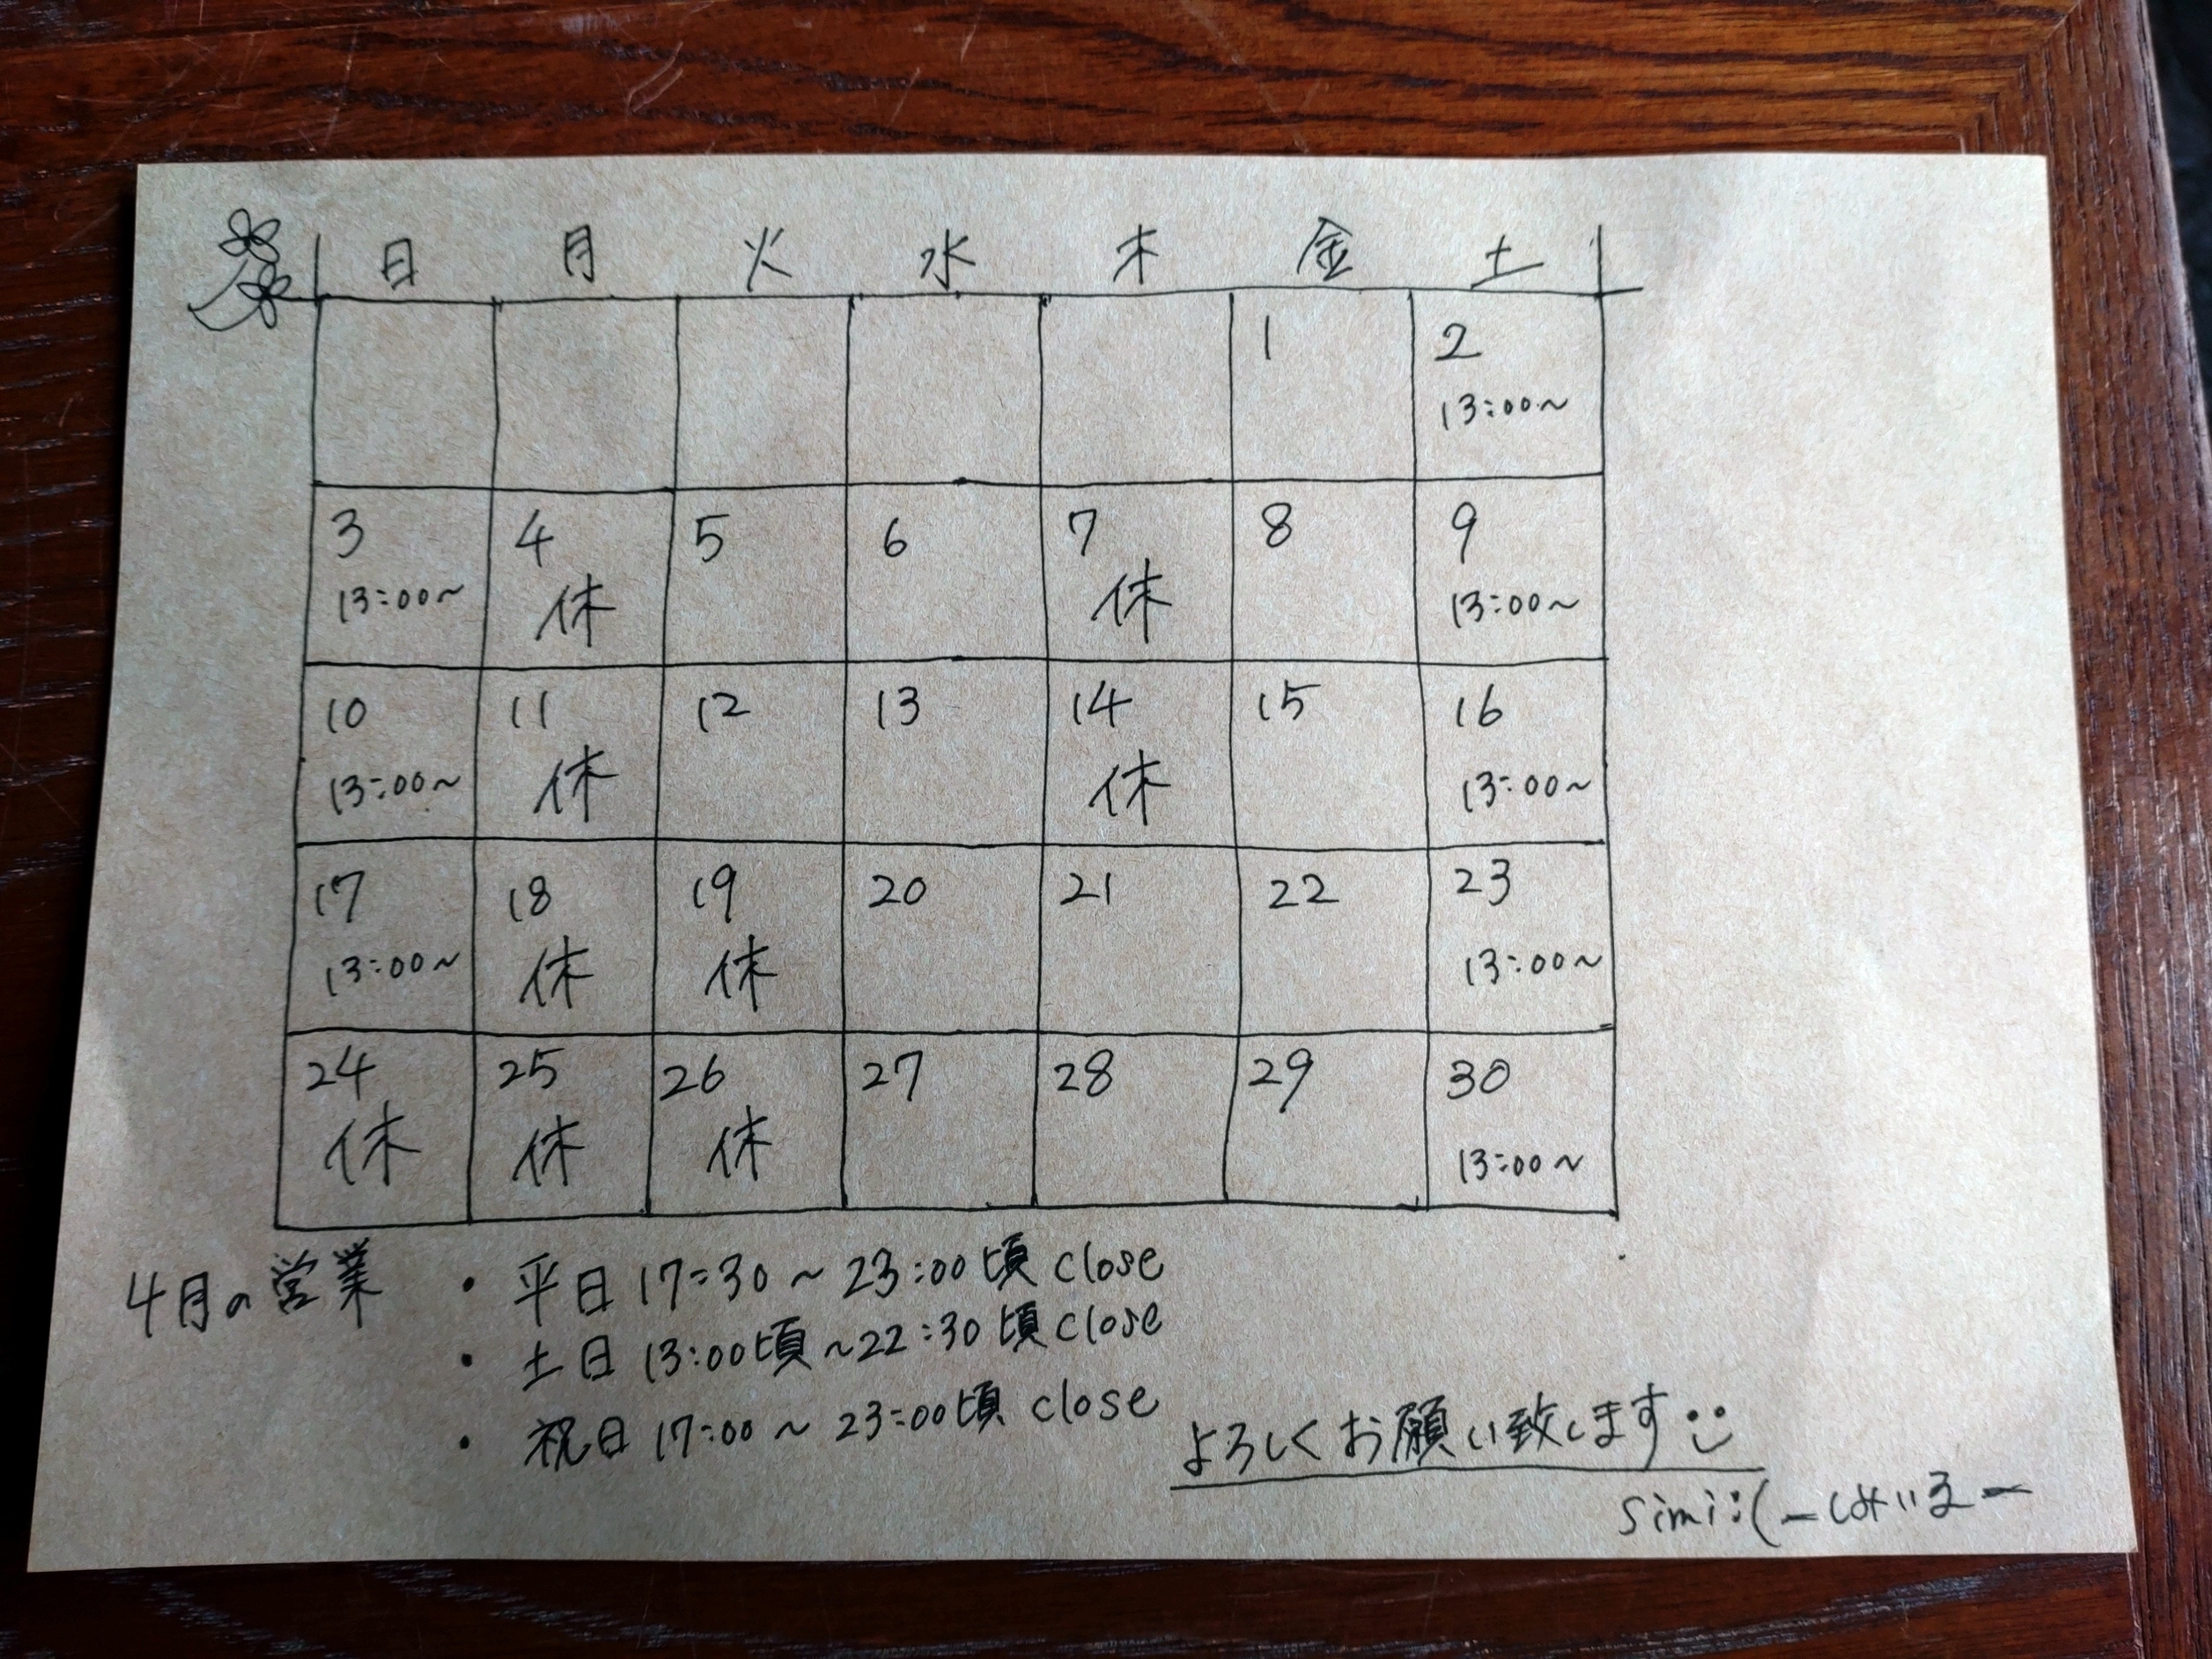 日 月 火 水 木 金 土
1 2
13:00~
3 4 5 6 7 8 9
13:00~ 休 休 13:00~
10 11 12 13 14 15 16
13:00~ 休 休 13:00~
17 18 19 20 21 22 23
13:00~ 休 休 13:00~
24 25 26 27 28 29 30
休 休 休 13:00~
4月の営業 ・平日 17:30~23:00頃 close
・土日 13:00頃~22:30頃 close
・祝日 17:00~23:00頃 close
よろしくお願い致します
simi:(